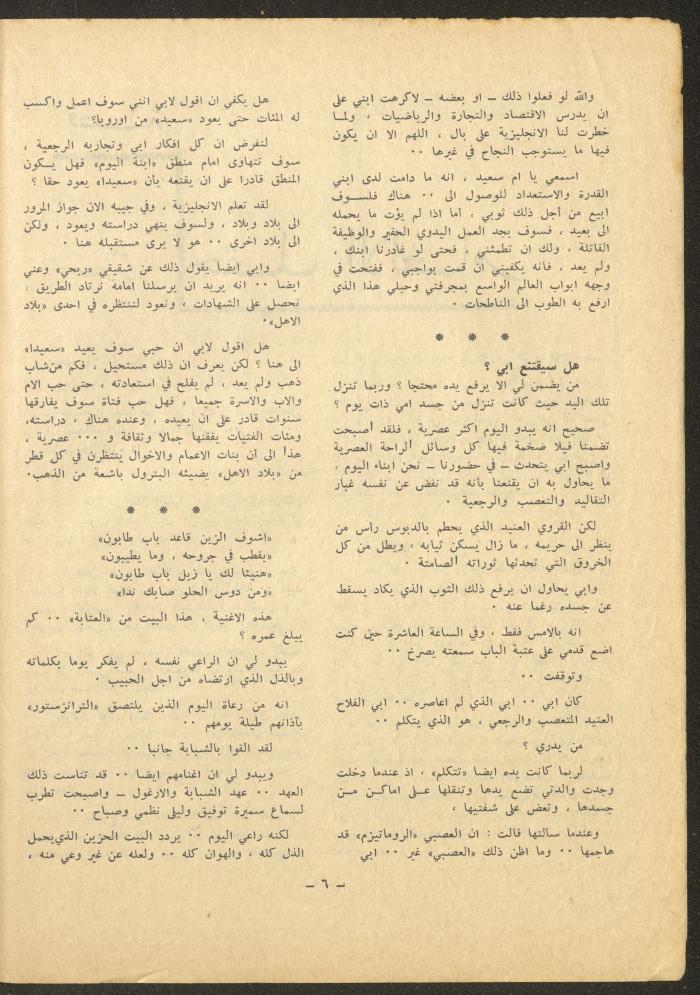 والله لو فعلوا ذلك – او بعضه – لاكرهت ابني على
ان يدرس الاقتصاد والتجارة والرياضيات ، ولمـا
خطرت لنا الانجليزية على بال ، اللهم الا ان يكون
فيها ما يستوجب النجاح في غيرها ٠٠
اسمعي يا ام سعيد ، انه ما دامت لدى ابني
القدرة والاستعداد للوصول الى ٠٠ هناك فلسـوف
ابيع من أجل ذلك ثوبي ، أما اذا لم يؤت ما يحمله
الى بعيد ، فسوف يجد العمل اليدوي الحقير والوظيفة
القاتلة ، ولك ان تطمئني ، فحتى لو غادرنا ابنك ،
ولم يعد ، فانه يكفيني ان قمت بواجبي ، ففتحت في
وجهه ابواب العالم الواسع بمجرفتي وحبلي هذا الذي
ارفع به الطوب الى الناطحات ٠
* * *
هل سيقتنع ابي ؟
من يضمن لي الا يرفع يده محتجا ؟ وربما تنزل
تلك اليد حيث كانت تنزل من جسد امي ذات يوم ؟
صحيح انه يبدو اليوم اكثر عصرية ، فلقد أصبحت
تضمنا فيلا ضخمة فيها كل وسائل الراحة العصرية
واصبح ابي يتحدث – في حضورنا – نحن ابناء اليوم ،
ما يحاول به ان يقنعنا بأنه قد نفض عن نفسه غبار
التقاليد والتعصب والرجعية ٠
لكن القروي العنيد الذي يحطم بالدبوس رأس من
ينظر الى حريمه ، ما زال يسكن ثيابه ، ويطل من كل
الخروق التي تحدثها ثوراته الصامتة ٠
وابي يحاول ان يرفع ذلك الثوب الذي يكاد يسقط
عن جسده رغما عنه ٠
انه بالامس فقط ، وفي الساعة العاشرة حين كنت
اضع قدمي على عتبة الباب سمعته يصرخ ٠٠
وتوقفت ٠٠
كان ابي ٠٠ ابي الذي لم اعاصره ٠٠ ابي الفلاح
العنيد المتعصب والرجعي ، هو الذي يتكلم ٠٠
من يدري ؟
لربما كانت يده ايضا «تتكلم» ، اذ عندما دخلت
وجدت والدتي تضع يدها وتنقلها علـى اماكـن مـن
جسدها ، وتعض على شفتيها ،
وعندما سالتها قالت : ان العصبي «الروماتيزم» قد
هاجمها ٠٠ وما اظن ذلك «العصبي» غير ٠٠ ابي
هل يكفي ان اقول لابي انني سوف اعمل واكسب
له المئات حتى يعود «سعيد» من اوروبا؟
لنفرض ان كل افكار ابي وتجاربه الرجعية ،
سوف تتهاوى امام منطق «ابنة اليوم» فهل يـكون
المنطق قادرا على ان يقنعه بأن «سعيدا» يعود حقا ؟
لقد تعلم الانجليزية ، وفي جيبه الان جواز المرور
الى بلاد وبلاد ، ولسوف ينهي دراسته ويعود ، ولكن
الى بلاد اخرى ٠٠ هو لا يرى مستقبله هنا ٠
وابي ايضا يقول ذلك عن شقيقي «ربحي» وعني
ايضا ٠٠ انه يريد ان يرسلنا امامه نرتاد الطريق ،
نحصل على الشهادات ، ونعود لننتظره في احدى «بلاد
الاهل»٠
هل اقول لابي ان حبي سوف يعيد «سعيدا»
الى هنا ؟ لكن يعرف ان ذلك مستحيل ، فكم من شاب
ذهب ولم يعد ، لم يفلح في استعادته ، حتى حب الام
والاب والاسرة جميعا ، فهل حب فتاة سوف يفارقها
سنوات قادر على ان يعيده ، وعنده هناك ، دراسته،
ومئات الفتيات يفقنها جمالا وثقافة و ٠٠٠ عصرية ،
هذا الى أن بنات الاعمام والاخوال ينتظرن في كل قطر
من «بلاد الاهل» يضيئه البترول باشعة من الذهب٠
* * *
«اشوف الزين قاعد باب طابون»
«يقطب في جروحه ، وما يطيبون»
«هنيئا لك يا زبل باب طابون»
«ومن دوس الحلو صابك ندا»
هذه الاغنية ، هذا البيت من «العتابة» ٠٠ كم
يبلغ عمره ؟
يبدو لي ان الراعي نفسه ، لم يفكر يوما بكلماته
وبالذل الذي ارتضاه من اجل الحبيب ٠
انه من رعاة اليوم الذين يلتصق «الترانزستور»
بآذانهم طيلة يومهم ٠٠
لقد القوا بالشبابة جانبا ٠٠
ويبدو لي ان اغنامهم ايضا ٠٠ قد تناست ذلك
العهد ٠٠ عهد الشبابة والارغول – واصبحت تطرب
لسماع سميرة توفيق وليلى نظمي وصباح ٠٠
لكنه راعي اليوم ٠٠ يردد البيت الحزين الذي يحمل
الذل كله ، والهوان كله ٠٠ ولعله عن غير وعي منه ،
– ٦ –